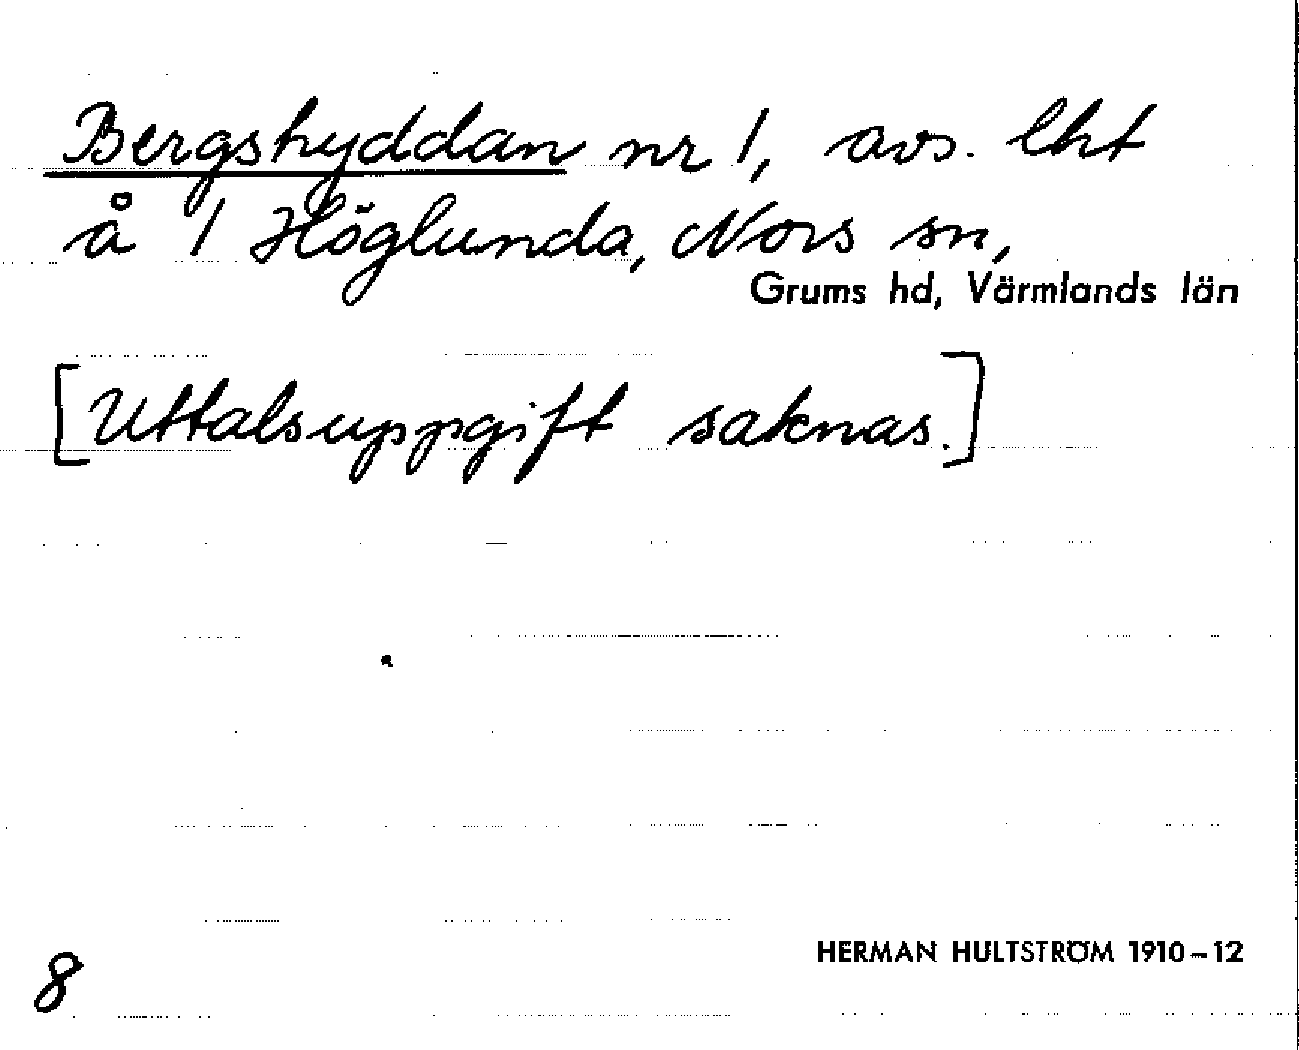 Bergshyddan nr 1, avs. lht
å 1 Höglunda, Nors sn,
Grums hd, Värmlands län
[Uttalsuppgift saknas.]
HERMAN HULTSTRÖM 1910-12
8